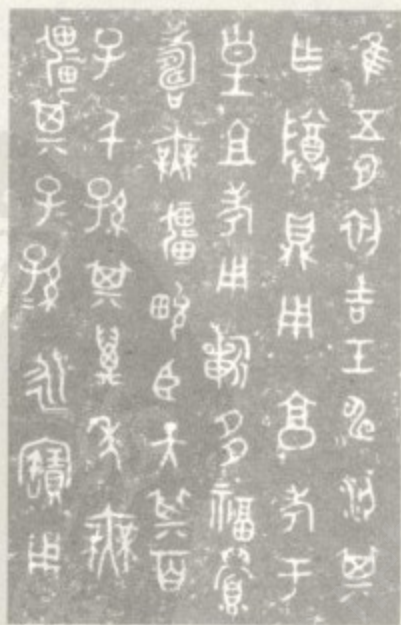 隹五月初吉壬申梁其
乍尊鼎用享考于
皇且考用祈多福眉
壽無疆畯臣天其百
子千孫其萬年無
疆其子子孫孫永寶用